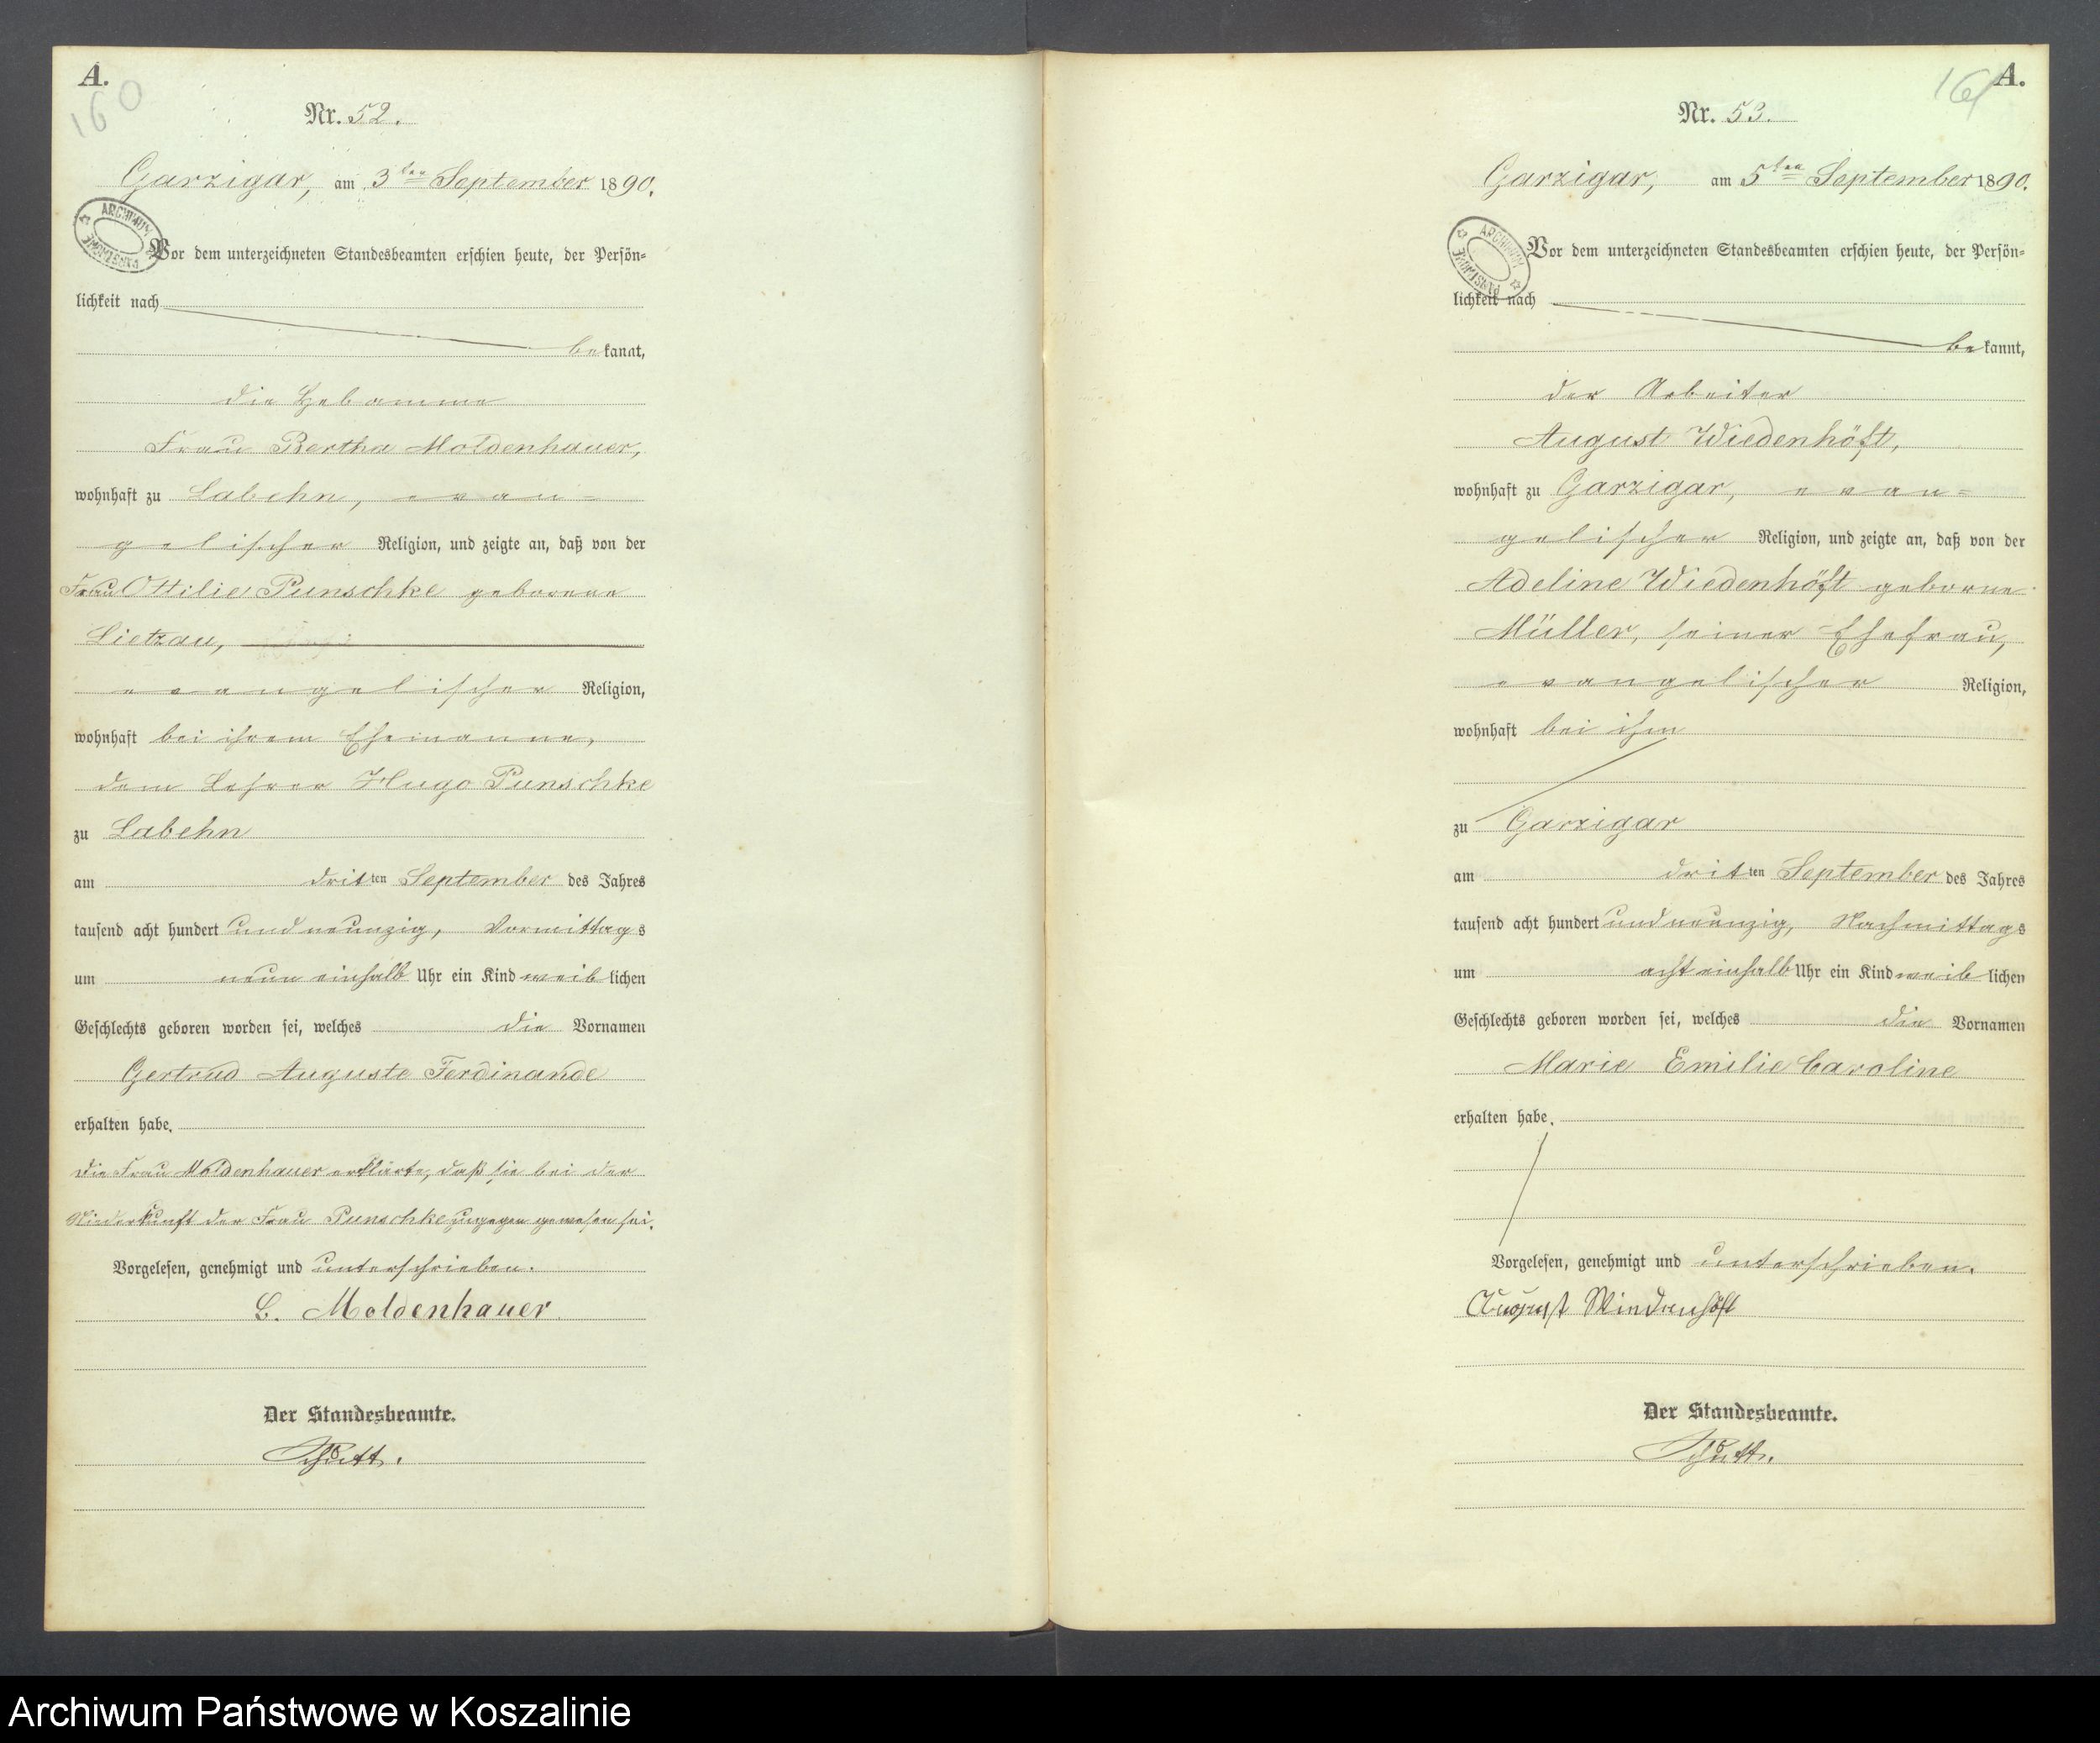 A.
160
Nr. 52.
Garzigar, am 3ten September 1890.
ARCHIWUM PAŃSTWOWE
Vor dem unterzeichneten Standesbeamten erschien heute, der Persön-
lichkeit nach
bekannt,
die Hebamme
Frau Bertha Moldenhauer,
wohnhaft zu Labehn, evan-
gelischer Religion, und zeigte an, daß von der
Frau Ottilie Punschke geborene
Lietzau,
evangelischer Religion,
wohnhaft bei ihrem Ehemanne,
dem Lehrer Hugo Punschke
zu Labehn
am dritten September des Jahres
tausend acht hundert und neunzig, Vormittags
um neun einhalb Uhr ein Kind weiblichen
Geschlechts geboren worden sei, welches die Vornamen
Gertrud Auguste Ferdinande
erhalten habe.
Die Frau Moldenhauer erklärte, daß sie bei der
Niederkunft der Frau Punschke zugegen gewesen sei.
Vorgelesen, genehmigt und unterschrieben.
B. Moldenhauer.
Der Standesbeamte.
A.
161
Nr. 53.
Garzigar, am 5ten September 1890.
ARCHIWUM PAŃSTWOWE
Vor dem unterzeichneten Standesbeamten erschien heute, der Persön-
lichkeit nach
bekannt,
der Arbeiter
August Wiedenhöft,
wohnhaft zu Garzigar, evan-
gelischer Religion, und zeigte an, daß von der
Adeline Wiedenhöft geborne
Müller, seiner Ehefrau,
evangelischer Religion,
wohnhaft bei ihm
zu Garzigar
am dritten September des Jahres
tausend acht hundert und neunzig, Nachmittags
um acht einhalb Uhr ein Kind weiblichen
Geschlechts geboren worden sei, welches die Vornamen
Marie Emilie Caroline
erhalten habe.
Vorgelesen, genehmigt und unterschrieben.
August Wiedenhöft
Der Standesbeamte.
Archiwum Państwowe w Koszalinie